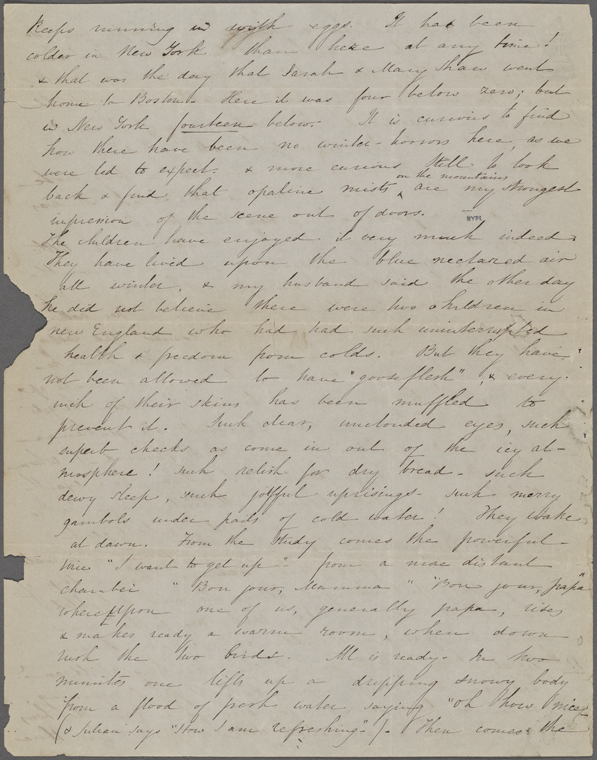 keeps running in with eggs. It has been
colder in New York than here at any time!
& that was the day that Sarah & Mary Shaw went
home to Boston. Here it was four below zero; but
in New York fourteen below. It is curious to find
how there have been no winter-horrors here, as we
were led to expect. & more curious still to look
on the mountains
back & find that opaline mists are my strongest
impression of the scene out of doors.
NYPL
The children have enjoyed it very much indeed.
They have lived upon the blue nectared air
all winter, & my husband said the other day
he did not believe there were two children in
new England who had had such uninterrupted
health & freedom from colds. But they have
not been allowed to have "goose flesh", & every
inch of their skins has been muffled to
prevent it. Such clear, unclouded eyes, such
cheeks as come in out of the icy at-
mosphere! such relish for dry bread- such
dewy sleep, such joyful uprisings- such merry
gambols under pails of cold water! They wake
at dawn. From the study comes the powerful
"I want to get up" from a more distant
chamber "Bon jour, Mamma" "Bon jour, papa"
whereupon one of us, generally papa, rises
& makes ready a warm room, when down
rush the two birds. All is ready. In two
minutes one lifts up a dripping snowy body
from a flood of fresh water saying "Oh how nice"
(& Julian says "How I am refreshing"). Then comes the